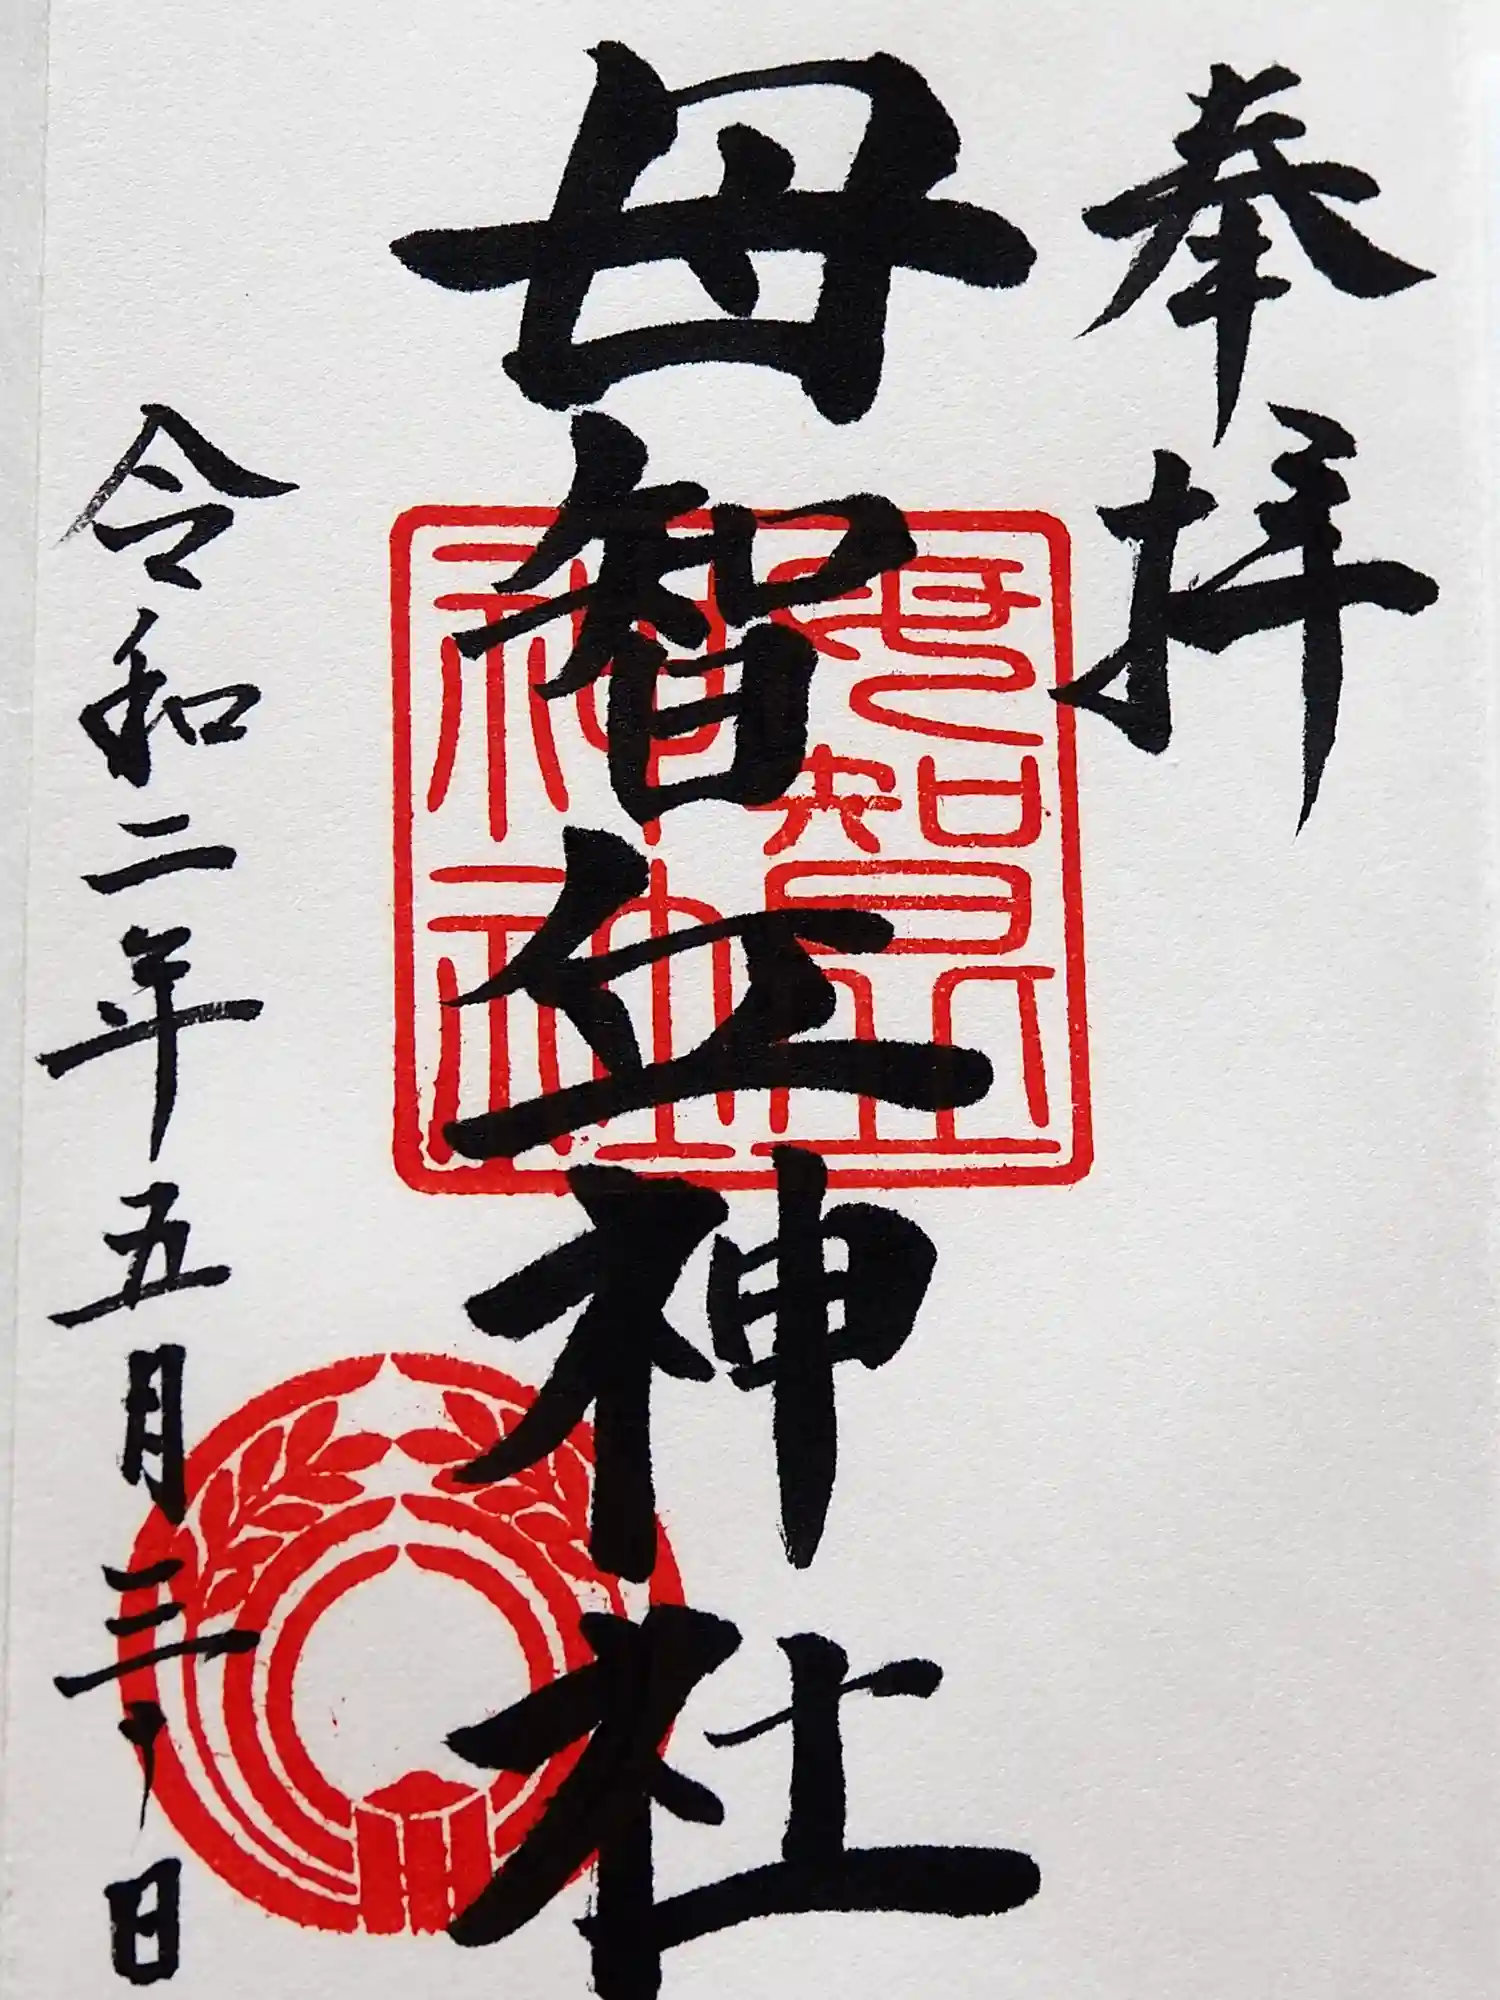 奉拝
母智丘神社
母智丘
神社
令和二年五月三日